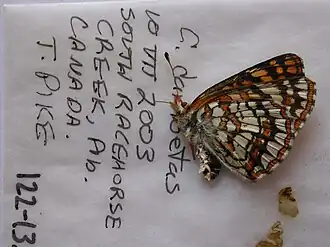 C. damoetas
10 VII 2003
SOUTH RACEHORSE
CREEK, Ab.
CANADA.
T. PIKE
122-13